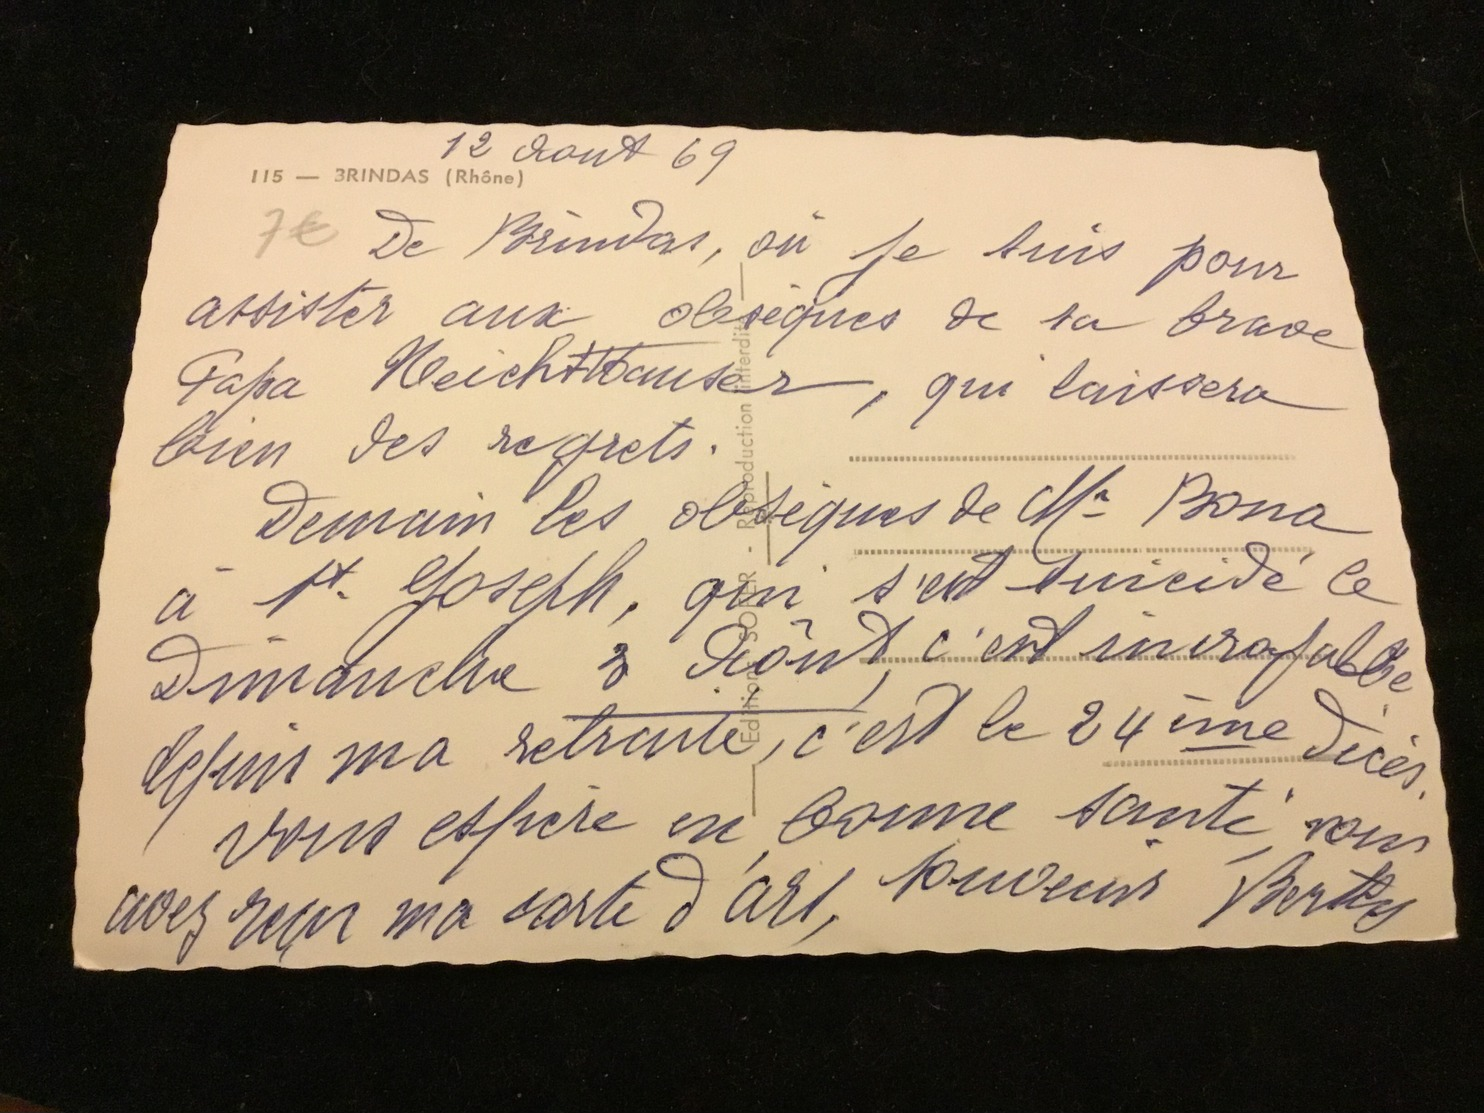 12 Aout 69
115 — BRINDAS (Rhône)
7€
De Brindas, où je suis pour
assister aux obsèques de sa brave
Papa, qui laissera
bien des regrets.
Demain les obsèques de Mr Bona
à St. Joseph, qui s'est suicidé le
Dimanche 3 Aôut, c'est incroyable
depuis ma retraite, c'est le 24 ème décès.
Vous espère en bonne santé, vous
avez reçu ma carte d'Ars, souvenir Berthy
Editions SOFER - Reproduction interdite